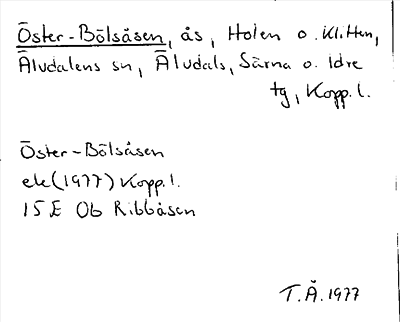 Öster-Bölsåsen, ås, Holen o. Klitten,
Äludalens sn, Äludals, Särna o. Idre
tg, Kopp.l.
Öster-Bölsåsen
ek(1977) Kopp.l.
15E 0b Ribbåsen
T.Å.1977